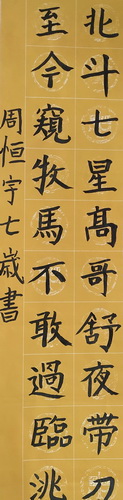 北斗七星髙哥舒夜带刀
至今窺牧馬不敢過臨洮
周恒宇七歲書